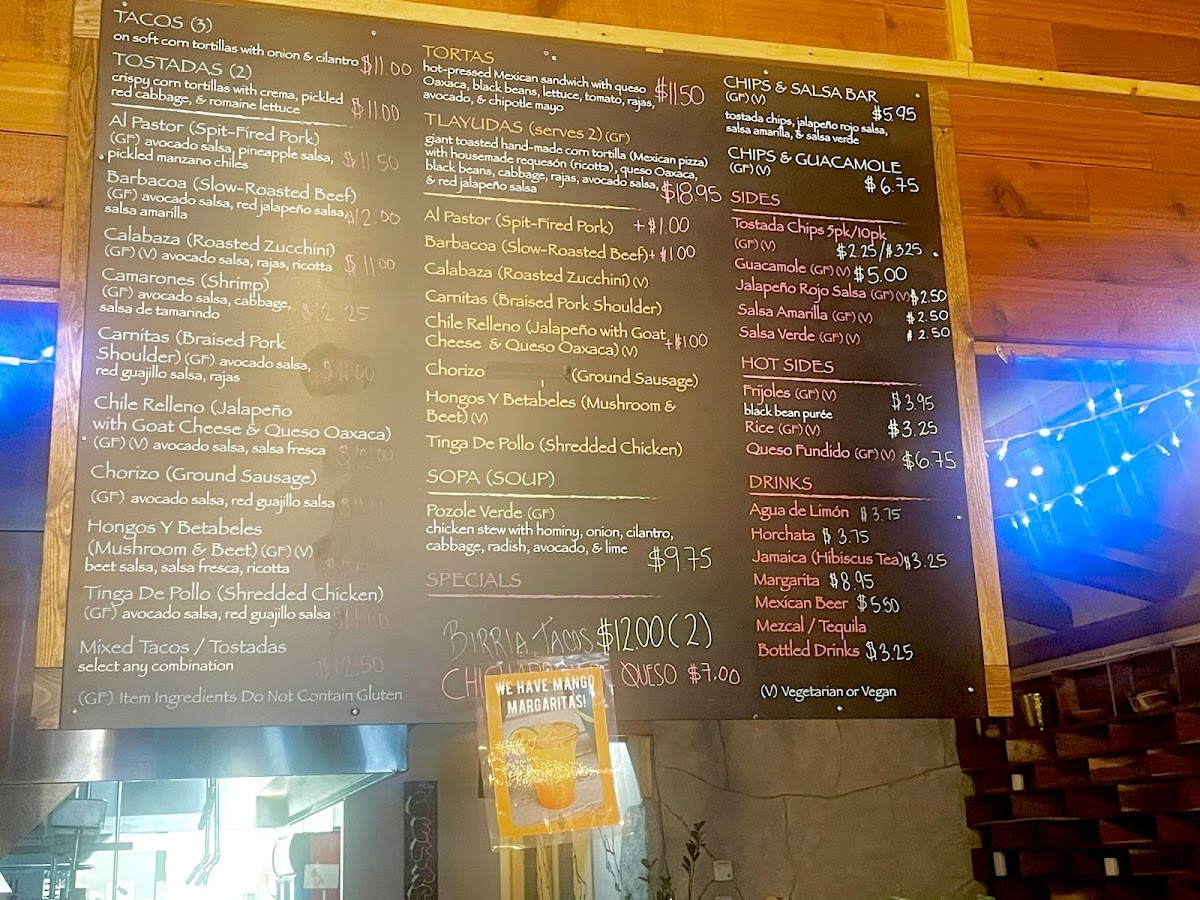 TACOS (3)
on soft corn tortillas with onion & cilantro $11.00
TOSTADAS (2)
crispy corn tortillas with crema, pickled
red cabbage, & romaine lettuce $11.00
Al Pastor (Spit-Fired Pork)
(GF) avocado salsa, pineapple salsa,
pickled manzano chiles $11.50
Barbacoa (Slow-Roasted Beef)
(GF) avocado salsa, red jalapeño salsa,
salsa amarilla $12.00
Calabaza (Roasted Zucchini)
(GF) (V) avocado salsa, rajas, ricotta $11.00
Camarones (Shrimp)
(GF) avocado salsa, cabbage,
salsa de tamarindo $12.25
Carnitas (Braised Pork
Shoulder) (GF) avocado salsa,
red guajillo salsa, rajas $11.00
Chile Relleno (Jalapeño
with Goat Cheese & Queso Oaxaca)
(GF) (V) avocado salsa, salsa fresca $12.00
Chorizo (Ground Sausage)
(GF) avocado salsa, red guajillo salsa
Hongos Y Betabeles
(Mushroom & Beet) (GF) (V)
beet salsa, salsa fresca, ricotta
Tinga De Pollo (Shredded Chicken)
(GF) avocado salsa, red guajillo salsa
Mixed Tacos / Tostadas
select any combination $12.50
(GF) Item Ingredients Do Not Contain Gluten
TORTAS
hot-pressed Mexican sandwich with queso
Oaxaca, black beans, lettuce, tomato, rajas, $11.50
avocado, & chipotle mayo
TLAYUDAS (serves 2) (GF)
giant toasted hand-made corn tortilla (Mexican pizza)
with housemade requesón (ricotta), queso Oaxaca,
black beans, cabbage, rajas, avocado salsa, $18.95
& red jalapeño salsa
Al Pastor (Spit-Fired Pork) +$1.00
Barbacoa (Slow-Roasted Beef) +$1.00
Calabaza (Roasted Zucchini) (V)
Carnitas (Braised Pork Shoulder)
Chile Relleno (Jalapeño with Goat
Cheese & Queso Oaxaca) (V) +$1.00
Chorizo (Ground Sausage)
Hongos Y Betabeles (Mushroom &
Beet) (V)
Tinga De Pollo (Shredded Chicken)
SOPA (SOUP)
Pozole Verde (GF)
chicken stew with hominy, onion, cilantro,
cabbage, radish, avocado, & lime $9.75
SPECIALS
BIRRIA TACOS $12.00 (2)
QUESO $7.00
WE HAVE MANGO
MARGARITAS!
CHIPS & SALSA BAR
(GF) (V) $5.95
tostada chips, jalapeño rojo salsa,
salsa amarilla, & salsa verde
CHIPS & GUACAMOLE
(GF) (V) $6.75
SIDES
Tostada Chips 5pk/10pk
(GF) (V) $2.25/$3.25
Guacamole (GF) (V) $5.00
Jalapeño Rojo Salsa (GF) (V) $2.50
Salsa Amarilla (GF) (V) $2.50
Salsa Verde (GF) (V) $2.50
HOT SIDES
Frijoles (GF) (V) $3.95
black bean purée
Rice (GF) (V) $3.25
Queso Fundido (GF) (V) $6.75
DRINKS
Agua de Limón $3.75
Horchata $3.75
Jamaica (Hibiscus Tea) $3.25
Margarita $8.95
Mexican Beer $5.50
Mezcal / Tequila
Bottled Drinks $3.25
(V) Vegetarian or Vegan